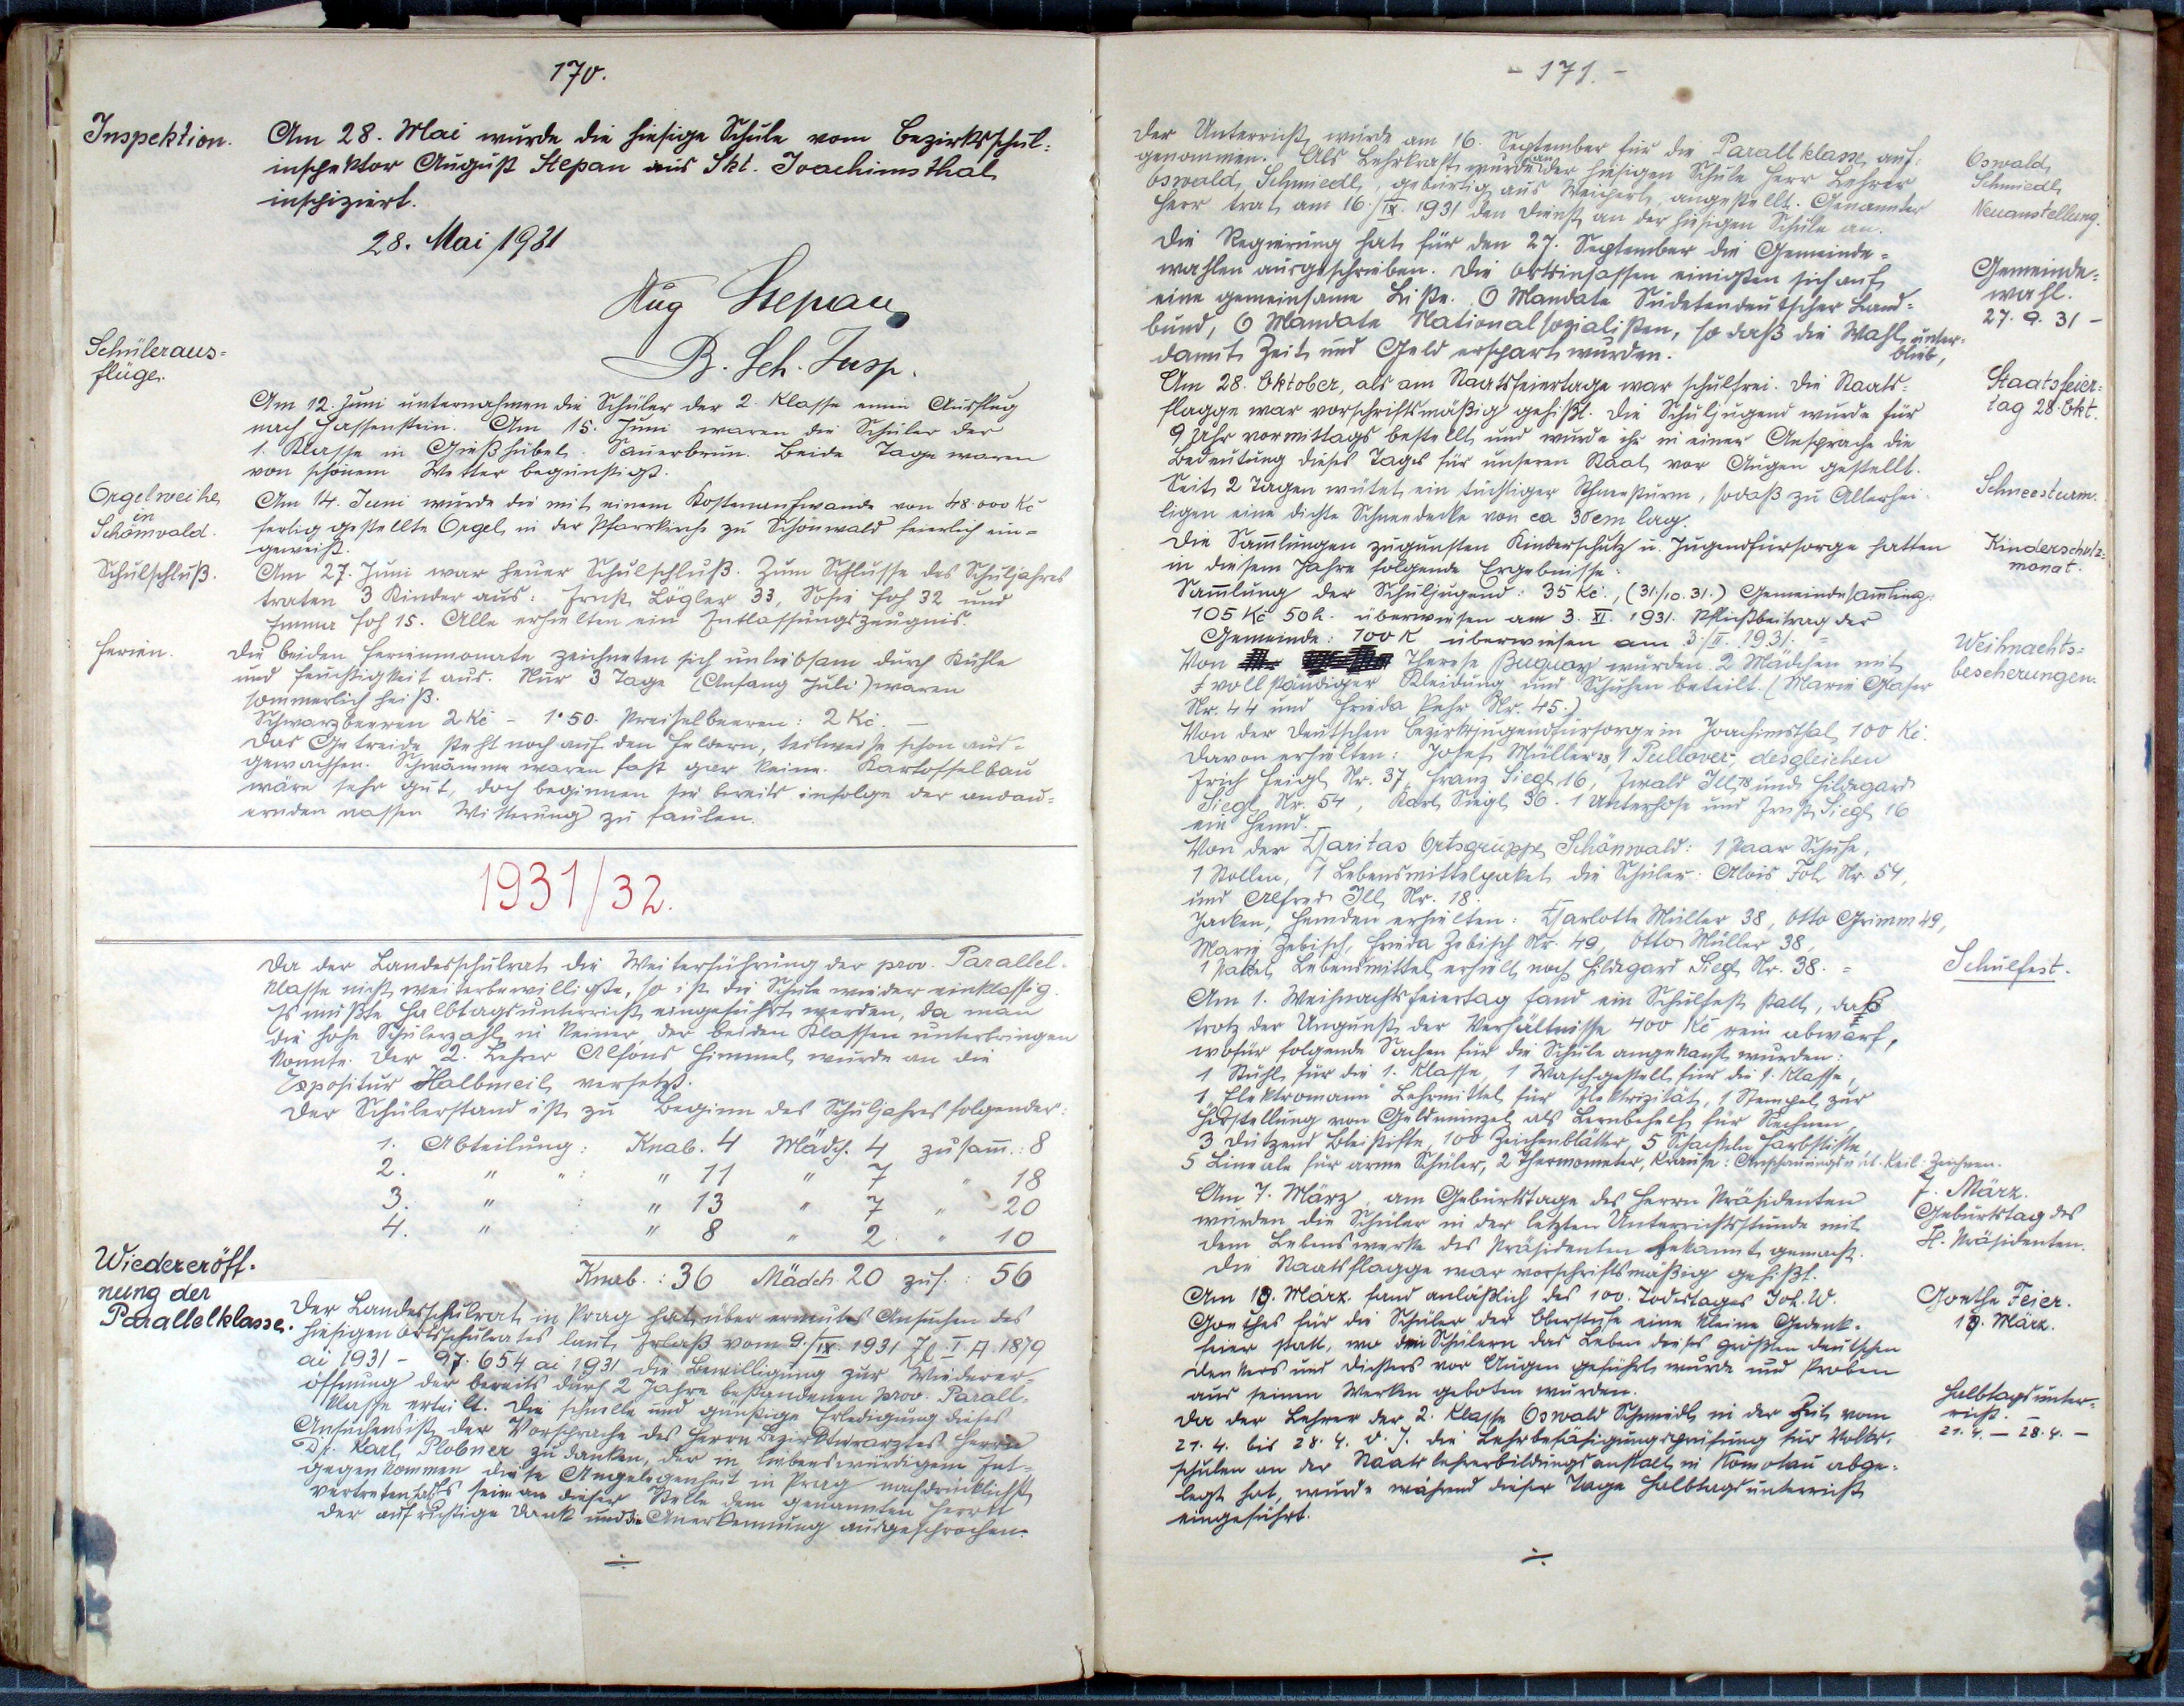 170.
Inspektion.
Am 28. Mai wurde die hiesige Schule vom Bezirksschul=
inspektor August Stepan aus Skt. Joachimsthal
inspiziert.
28. Mai 1931
Aug Stepan
B. Sch. Insp.
Schüleraus=
flüge.
Am 12. Juni unternahmen die Schüler der 2. Klasse einen Ausflug
nach Hassenstein. Am 15. Juni waren die Schüler der
1. Klasse in Gießhübel Sauerbrun. Beide Tage waren
von schönem Wetter begünstigt.
Orgelweihe
in
Schönwald.
Am 14. Juni wurde die mit einem Kostenaufwande von 48.000 Kč
fertig gestellte Orgel in der Pfarrkirche zu Schönwald feierlich ein=
geweiht.
Schulschluß.
Am 27. Juni war heuer Schulschluß. Zum Schlusse des Schuljahres
traten 3 Kinder aus: Ernst Lögler 33, Sofie 32 und
Emma 15. Alle erhielten ein Entlassungszeugnis.
Ferien.
Die beiden Ferienmonate zeichneten sich unliebsam durch Kühle
und Feuchtigkeit aus. Nur 3 Tage (Anfang Juli) waren
sommerlich heiß.
Schwarzbeeren 2 Kč - 1·50. Preiselbeeren: 2 Kč. —
Das Getreide steht noch auf den Feldern, teilweise schon aus=
gewachsen. Schwämme waren fast gar keine. Kartoffelbau
wäre sehr gut, doch beginnen sie bereits infolge der andau=
ernden nassen Witterung zu faulen.
1931/32.
Da der Landesschulrat die Weiterführung der prov. Parallel-
klasse nicht weiterbewilligte, so ist die Schule wieder einklassig.
Es mußte Halbtagsunterricht eingeführt werden, da man
die hohe Schülerzahl in keiner der beiden Klassen unterbringen
konnte. Der 2. Lehrer Alfons Himmel wurde an die
Expositur Halbmeil versetzt.
Der Schülerstand ist zu Beginn des Schuljahres folgender:
1. Abteilung: Knab. 4 Mädch. 4 zusamm.: 8
2. " " : " 11 " 7 " 18
3. " : " 13 " 7 " 20
4. " : " 8 " 2 " 10
Knab.: 36 Mädch. 20 zus.: 56
Wiedereröff-
nung der
Parallelklasse.
Der Landesschulrat in Prag hat über erneutes Ansuchen des
hiesigen Ortsschulrates laut Erlaß vom 9./IX. 1931 Zl. I A 1879
ai 1931 - 97.654 ai 1931 die Bewilligung zur Wiederer-
öffnung der bereits durch 2 Jahre bestandenen prov. Parall-
klasse erteilt. Die schnelle und günstige Erledigung dieses
Ansuchens ist der Vorsprache des Herrn Herrn
Dr. Karl Plobner zu danken, der in liebenswürdigem Ent-
gegenkommen diese Angelegenheit in Prag nachdrücklichst
vertreten. Es sei an dieser Stelle dem genannten Herrn
der aufrichtige Dank und die Anerkennung ausgesprochen.
- 171. -
Der Unterricht wurde am 16. September für die Parallklasse auf=
genommen. Als Lehrkraft wurde an der hiesigen Schule Herr Lehrer
Oswald Schmiedl, gebürtig aus Weipert, angestellt. Genannter
Herr trat am 16./IX. 1931 den Dienst an der hiesigen Schule an.
Oswald
Schmiedl
Neuanstellung.
Die Regierung hat für den 27. September die Gemeinde=
wahlen ausgeschrieben. Die Ortsinsassen einigten sich auf
eine gemeinsame Liste. 6 Mandate Sudetendeutscher Land=
bund, 6 Mandate Nationalsozialisten, so daß die Wahl unter=
blieb,
damit Zeit und Geld erspart wurden.
Gemeinde=
wahl.
27. 9. 31 -
Am 28. Oktober, als am Staatsfeiertage war schulfrei. Die Staats=
flagge war vorschriftsmäßig gehißt. Die Schuljugend wurde für
9 Uhr vormittags bestellt und wurde ihr in einer Ansprache die
Bedeutung dieses Tages für unseren Staat vor Augen gestellt.
Staatsfeier=
tag 28. Okt.
Seit 2 Tagen wütet ein tüchtiger Schneesturm, sodaß zu Allerhei-
ligen eine dichte Schneedecke von ca 30 cm lag.
Schneesturm.
Die Sammlungen zugunsten Kinderschutz u. Jugendfürsorge hatten
in diesem Jahre folgende Ergebnisse:
Sammlung der Schuljugend: 35 Kč., (31./10.31.) Gemeindesammlung:
105 Kč 50 h. überwiesen am 3. XI. 1931. Pflichtbeitrag der
Gemeinde: 100 K überwiesen am 3./II. 1931. =
Kinderschutz=
monat.
Von Therese Buquoy wurden 2 Mädchen mit
vollständiger Kleidung und Schuhen beteilt. (Marie Glaser
Nr. 44 und Frieda Nr. 45.)
Weihnachts=
bescherungen.
Von der Deutschen Bezirksjugendfürsorge in Joachimsthal 100 Kč.
Davon erhielten: Josef Müller 38, 1 Pullover, desgleichen
Erich Feigl Nr. 37, Franz Siegl 16, Ewald Ill 18 und Hildegard
Siegl Nr. 54, Karl Siegl 36. 1 Unterhose und Ernst Siegl 16
ein Hemd.
Von der Charitas Ortsgruppe Schönwald: 1 Paar Schuhe,
1 Stollen, 1 Lebensmittelpaket die Schüler: Alois Nr. 54,
und Alfred Ill Nr. 18.
Jacken, Hemden erhielten: Charlotte Müller 38, Otto Grimm 49,
Marie Zebisch, Frieda Zebisch Nr. 49, Otto Müller 38,
1 Paket Lebensmittel erhielt noch Hildegard Siegl Nr. 38. =
Schulfest.
Am 1. Weihnachtsfeiertag fand ein Schulfest statt, daß
trotz der Ungunst der Verhältnisse 400 Kč rein abwarf,
wofür folgende Sachen für die Schule angekauft wurden:
1 Stuhl für die 1. Klasse, 1 Waschgestell für die 1. Klasse,
1 "Elektromann" Lehrmittel für Elektrizität, 1 Stempel zur
Herstellung von Geldmünzel als Lernbehelf für Rechnen,
3 Dutzend Bleistifte, 100 Zeichenblätter, 5 Schachteln Farbstifte,
5 Lineale für arme Schüler, 2 Thermometer, Krause: Keil: Zeichnen.
Am 7. März, am Geburtstage des Herrn Präsidenten
wurden die Schüler in der letzten Unterrichtsstunde mit
dem Lebenswerke des Präsidenten bekannt gemacht.
Die Staatsflagge war vorschriftsmäßig gehißt.
7. März.
Geburtstag des
H. Präsidenten.
Am 19. März fand anläßlich des 100. Todestages Joh. W.
Goethes für die Schüler der Oberstufe eine kleine Gedenk-
feier statt, wo den Schülern das Leben dieses größten deutschen
Denkers und Dichters vor Augen geführt wurde und Proben
aus seinen Werken geboten wurden.
Goethe Feier.
19. März.
Da der Lehrer der 2. Klasse Oswald Schmiedl in der Zeit vom
21. 4. bis 28. 4. d. J. die Lehrbefähigungsprüfung für Volks-
schulen an der Staatslehrerbildungsanstalt in Komotau abge=
legt hat, wurde während dieser Tage Halbtagsunterricht
eingeführt.
Halbtagsunter-
richt. —
21. 4. — 28. 4. —